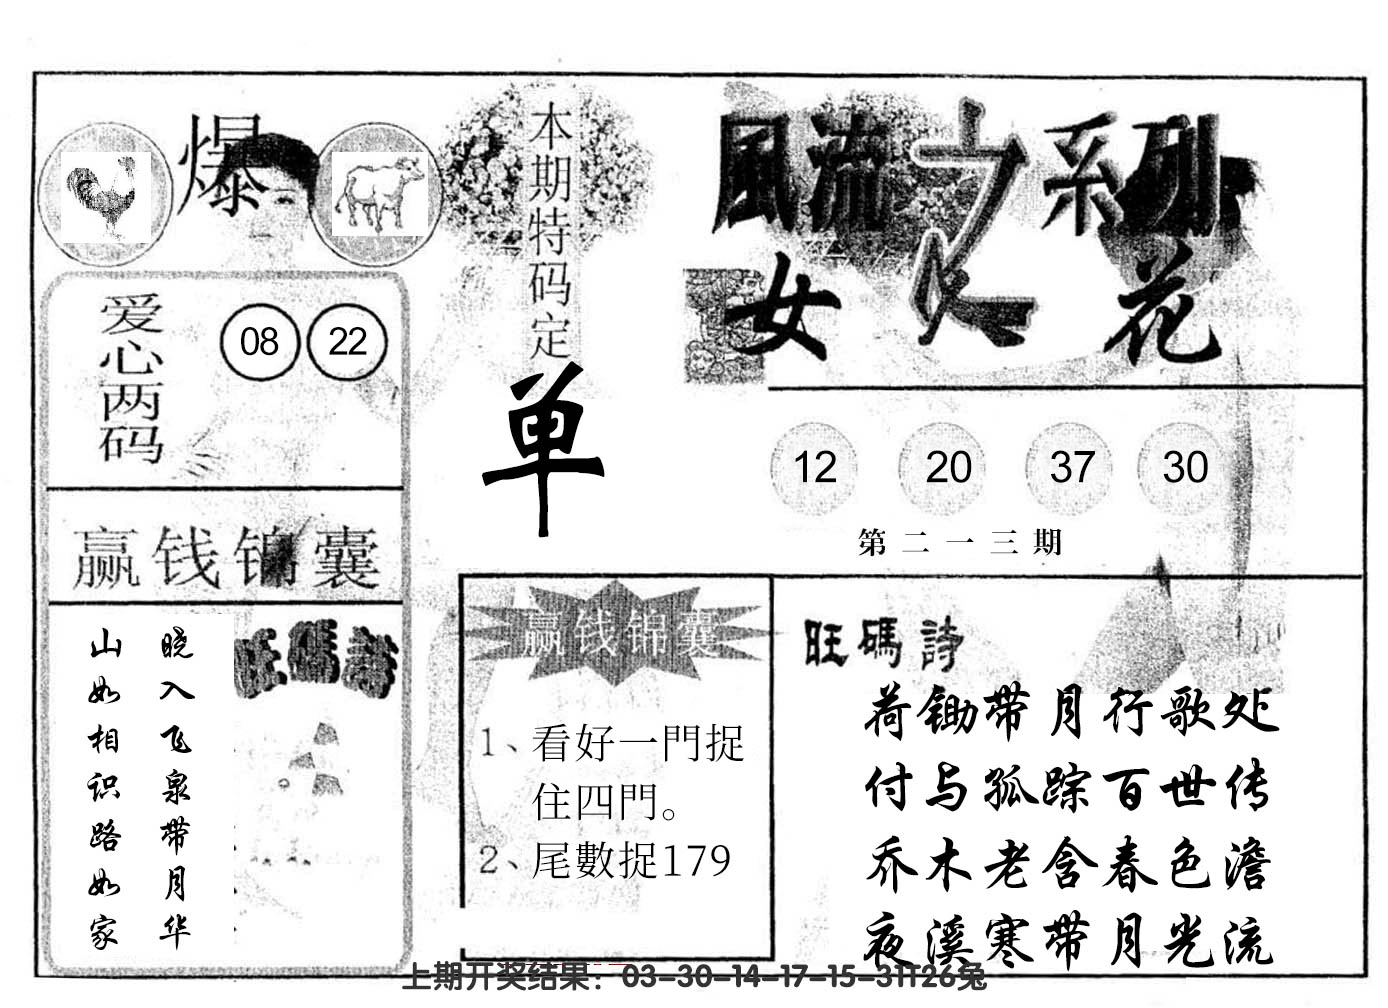 爆
本期特码定
单
風流之系列
女人花
爱心两码
08 22
12 20 37 30
第二一三期
赢钱锦囊
晓入飞泉带月华
山如相识路如家
旺碼詩
赢钱锦囊
1、看好一門捉
住四門。
2、尾數捉179
旺碼詩
荷锄带月行歌处
付与孤踪百世传
乔木老含春色澹
夜溪寒带月光流
上期开奖结果：03-30-14-17-15-31T26兔